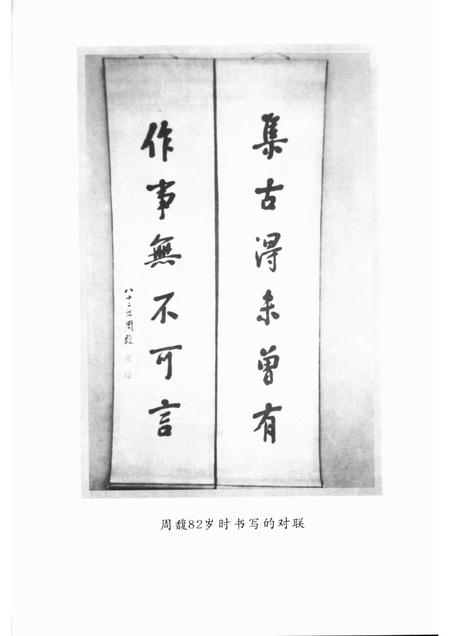 集古得未曾有
作事無不可言
八十二叟周馥
周馥82岁时书写的对联